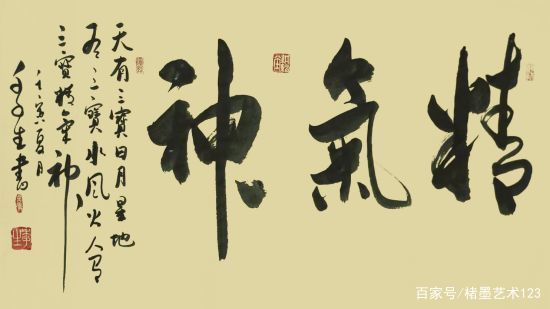 精氣神
天有三寶日月星地
有三寶水風火人有
三寶精氣神
壬寅夏月
生書
百家号/楮墨艺术123